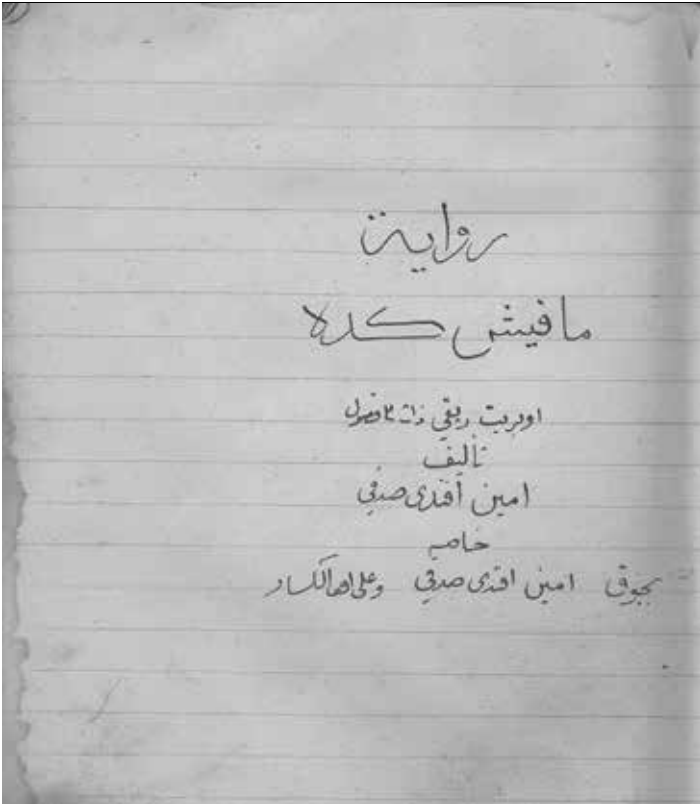 رواية
مافيش كده
اوبريت ريفي ذات ٣ فصول
تأليف
امين أفندى صدقي
خاصه
بجوق امين افندى صدقي وعلى افـ الكسار